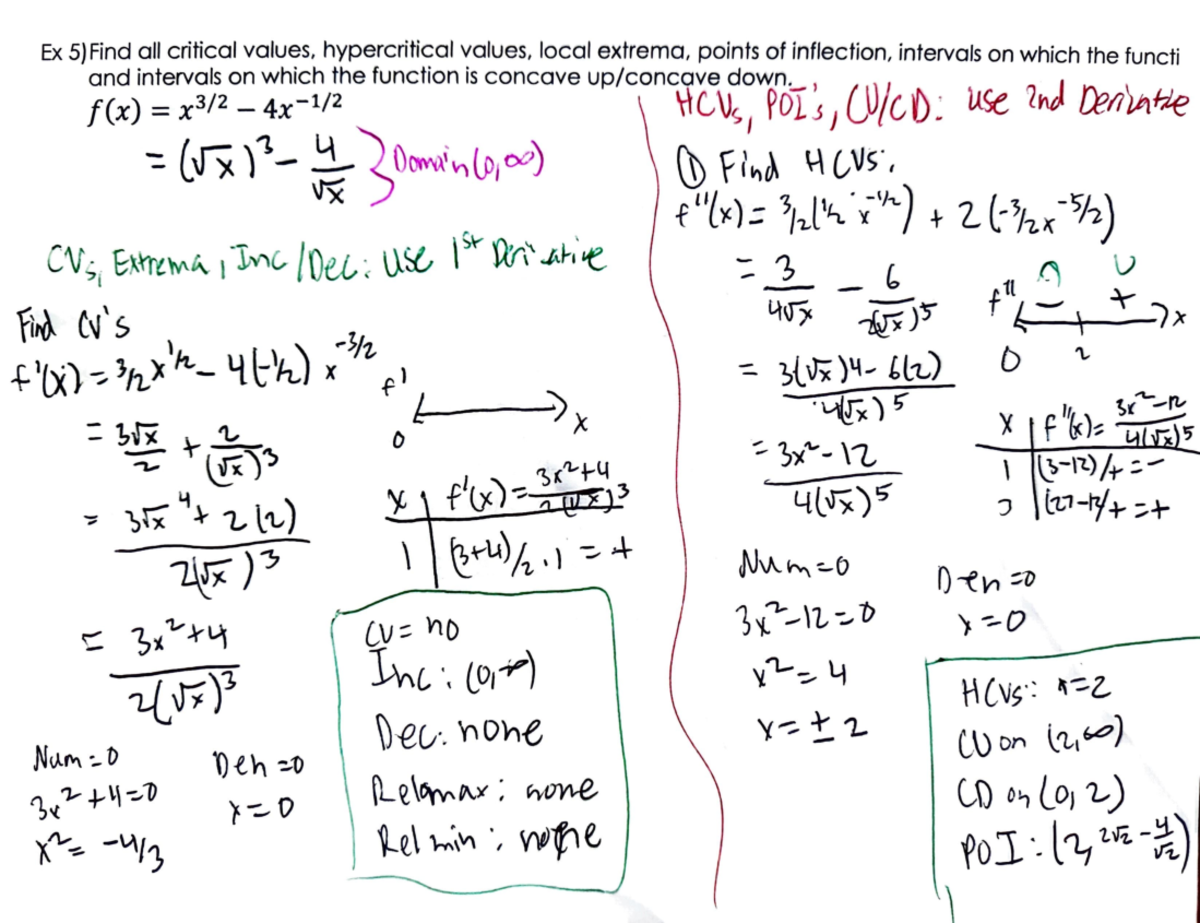 Ex 5) Find all critical values, hypercritical values, local extrema, points of inflection, intervals on which the functi
and intervals on which the function is concave up/concave down.
f(x) = x^{3/2} – 4x^{-1/2}
= (√x)^3 – 4/√x } Domain (0,∞)
CVs, Extrema, Inc/Dec: Use 1st Derivative
Find CV's
f'(x) = 3/2 x^{1/2} – 4(-1/2) x^{-3/2}
= 3√x/2 + 2/(√x)^3
= (3√x^4 + 2(2))/(2(√x)^3)
= (3x^2+4)/(2(√x)^3)
Num=0
3x^2+4=0
x^2 = -4/3
Den=0
x=0
f'
0 x
x | f'(x) = (3x^2+4)/(2(√x)^3)
1 | (3+4)/2·1 = +
CV = no
Inc: (0,∞)
Dec: none
Relmax: none
Rel min: none
HCVs, POI's, CU/CD: Use 2nd Derivative
① Find HCVs:
f''(x) = 3/2(1/2 x^{-1/2}) + 2(-3/2 x^{-5/2})
= 3/(4√x) – 6/(2(√x)^5)
= (3(√x)4 – 6(2))/(4(√x)^5)
= (3x^2-12)/(4(√x)^5)
Num=0
3x^2-12=0
x^2=4
x=±2
Den=0
x=0
f'' – + x
0 2
x | f''(x) = (3x^2-12)/(4(√x)^5)
1 | (3-12)/+ = –
3 | (27-12)/+ = +
HCVs: x=2
CU on (2,∞)
CD on (0,2)
POI: (2, 2√2 – 4/√2)